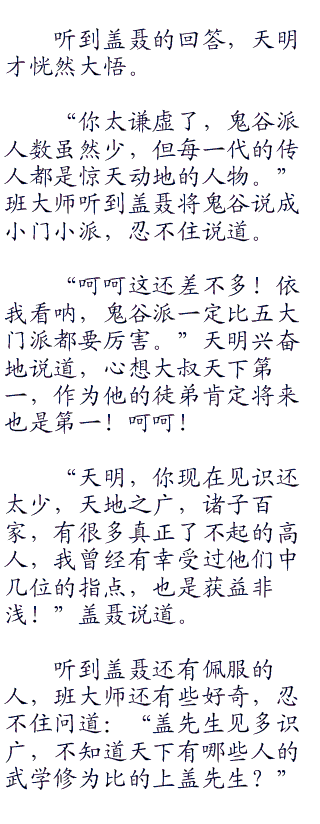 听到盖聂的回答，天明
才恍然大悟。
“你太谦虚了，鬼谷派
人数虽然少，但每一代的传
人都是惊天动地的人物。”
班大师听到盖聂将鬼谷说成
小门小派，忍不住说道。
“呵呵这还差不多！依
我看呐，鬼谷派一定比五大
门派都要厉害。”天明兴奋
地说道，心想大叔天下第
一，作为他的徒弟肯定将来
也是第一！呵呵！
“天明，你现在见识还
太少，天地之广，诸子百
家，有很多真正了不起的高
人，我曾经有幸受过他们中
几位的指点，也是获益非
浅！”盖聂说道。
听到盖聂还有佩服的
人，班大师还有些好奇，忍
不住问道：“盖先生见多识
广，不知道天下有哪些人的
武学修为比的上盖先生？”